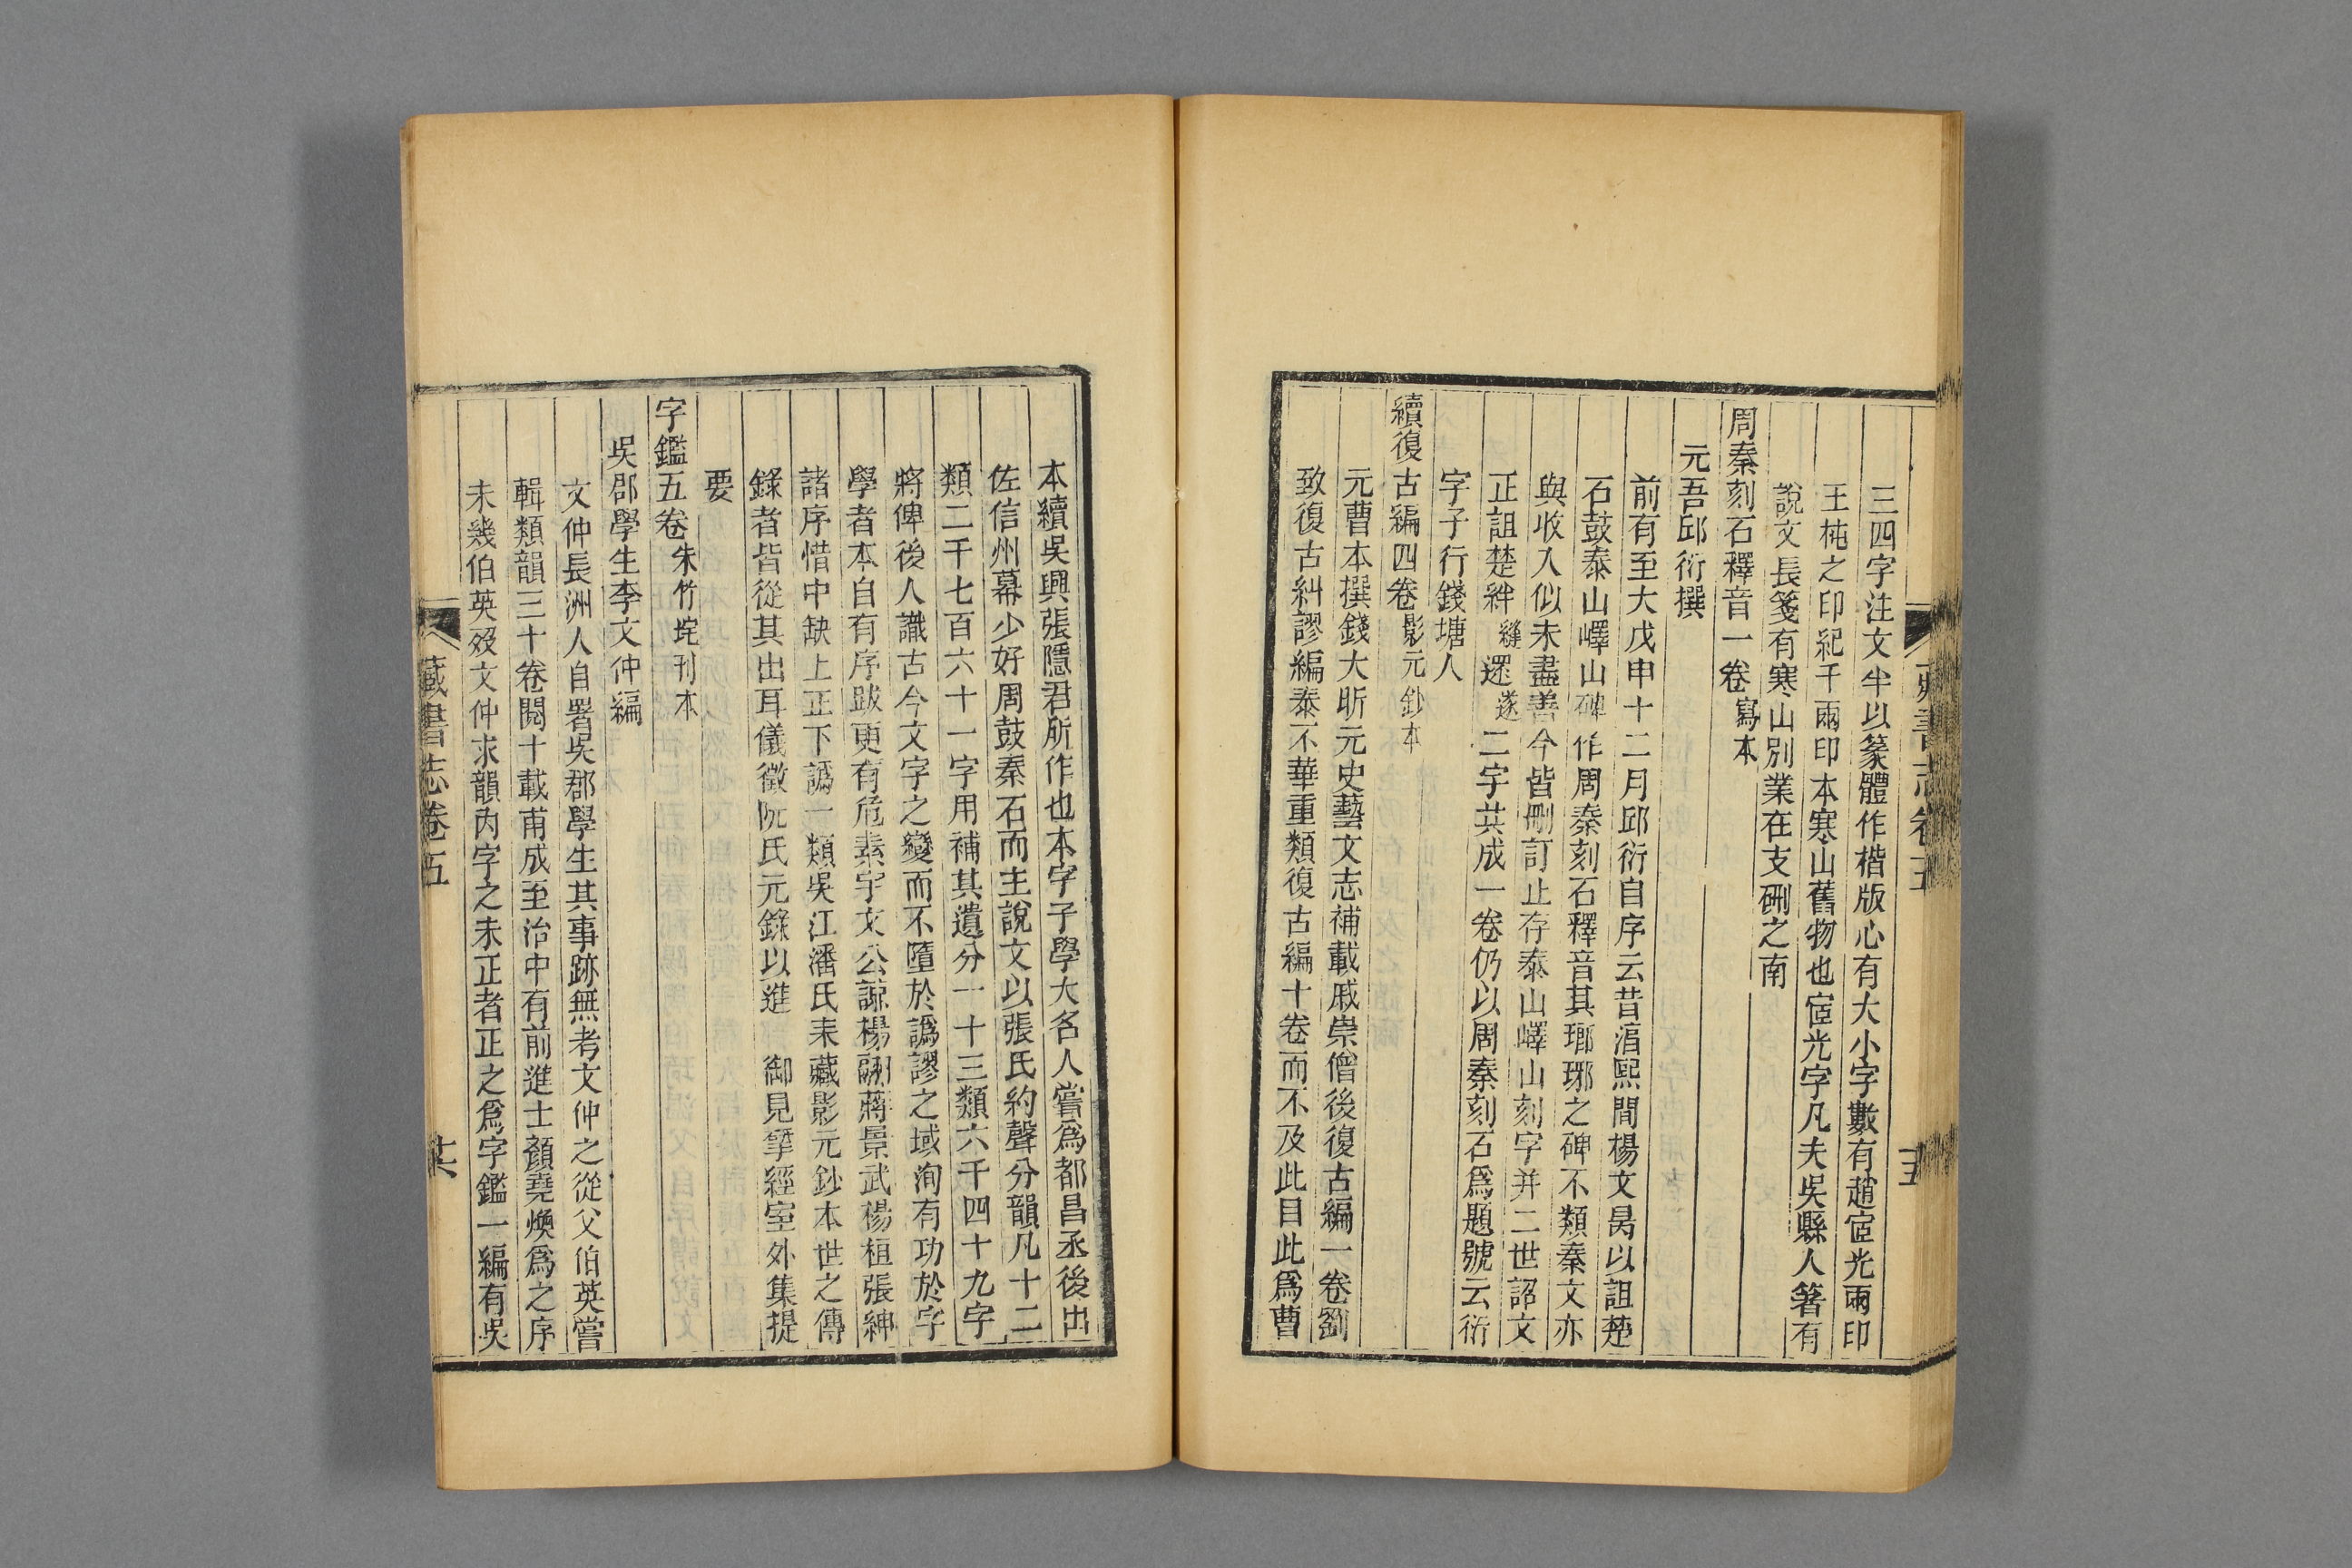 三四字注文半以篆體作楷版心有大小字數有趙宧光兩印
王杶之印紀千兩印本寒山舊物也宧光字凡夫吳縣人箸有
說文長箋有寒山別業在支硎之南
周秦刻石釋音一卷寫本
元吾邱衍撰
前有至大戊申十二月邱衍自序云昔淳熙間楊文昺以詛楚
石鼓泰山嶧山碑作周秦刻石釋音其瑯琊之碑不類秦文亦
與收入似未盡善今皆刪訂止存泰山嶧山刻字并二世詔文
正詛楚絆縫還遂二字共成一卷仍以周秦刻石爲題號云衍
字子行錢塘人
續復古編四卷影元鈔本
元曹本撰錢大昕元史藝文志補載戚崇僧後復古編一卷劉
致復古糾謬編泰不華重類復古編十卷而不及此目此爲曹
藏書志卷五
十五
本續吳興張隱君所作也本字子學大名人嘗爲都昌丞後出
佐信州幕少好周鼓秦石而主說文以張氏約聲分韻凡十二
類二千七百六十一字用補其遺分一十三類六千四十九字
將俾後人識古今文字之變而不墮於譌謬之域洵有功於字
學者本自有序跋更有危素宇文公諒楊翮蔣景武楊桓張紳
諸序惜中缺上正下譌一類吳江潘氏耒藏影元鈔本世之傳
錄者皆從其出耳儀徵阮氏元錄以進 御見揅經室外集提
要
字鑑五卷朱竹垞刊本
吳郡學生李文仲編
文仲長洲人自署吳郡學生其事跡無考文仲之從父伯英嘗
輯類韻三十卷閱十載甫成至治中有前進士顏堯煥爲之序
未幾伯英歿文仲求韻內字之未正者正之爲字鑑一編有吳
藏書志卷五